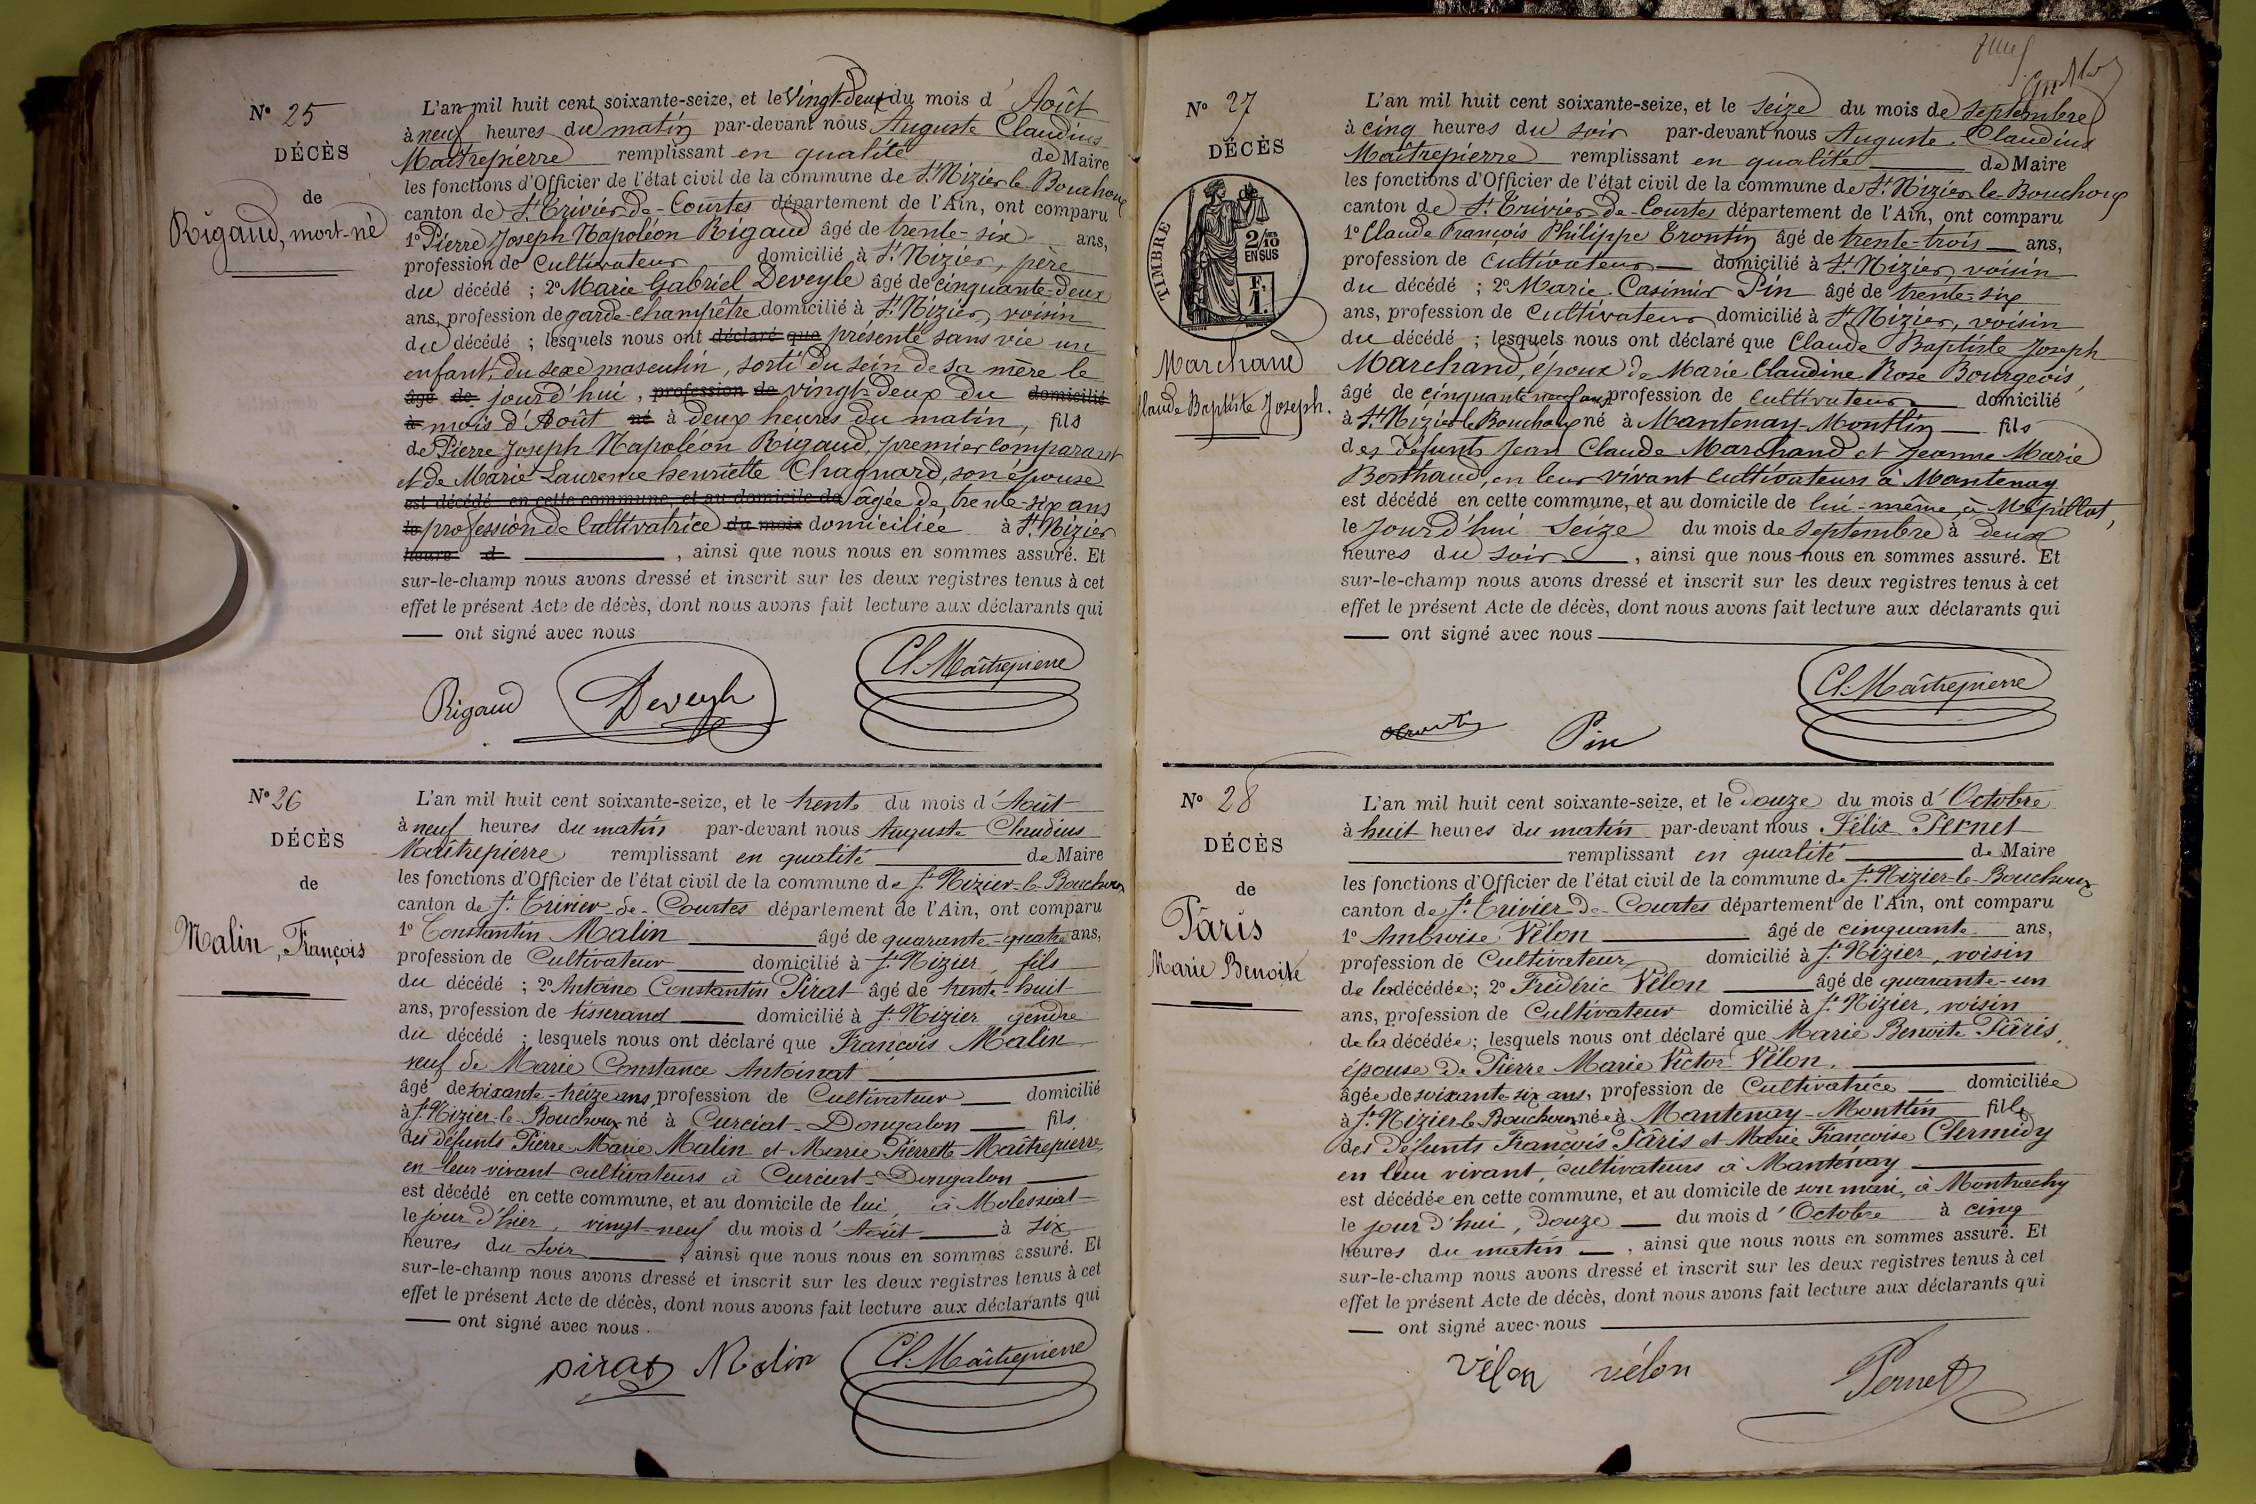 N° 25
DÉCÈS
de
Rigaud, mort-né
L'an mil huit cent soixante-seize, et le Vingt-deux du mois d' Août
à neuf heures du matin par-devant nous Auguste Claudius
Maîtrepierre remplissant en qualité de Maire
les fonctions d'Officier de l'état civil de la commune de St Nizier-le-Bouchoux
canton de St Trivier-de-Courtes département de l'Ain, ont comparu
1° Pierre Joseph Napoléon Rigaud âgé de trente-six ans,
profession de Cultivateur domicilié à St Nizier, père
du décédé ; 2° Marie Gabriel Deveyle âgé de cinquante-deux
ans, profession de garde-champêtre domicilié à St Nizier, voisin
du décédé ; lesquels nous ont déclaré que présenté sans vie un
enfant, du sexe masculin, sorti du sein de sa mère le
âgé de jourd'hui, profession de vingt-deux du domicilié
à mois d'Août né à deux heures du matin, fils
de Pierre Joseph Napoléon Rigaud, premier comparant
et de Marie Laurence henriette Chagnard, son épouse
est décédé en cette commune, et au domicile de âgée de trente-six ans
le profession de Cultivatrice du mois domiciliée à St Nizier
heure d , ainsi que nous nous en sommes assuré. Et
sur-le-champ nous avons dressé et inscrit sur les deux registres tenus à cet
effet le présent Acte de décès, dont nous avons fait lecture aux déclarants qui
ont signé avec nous
Rigaud Deveyle Cl. Maîtrepierre
N° 26
DÉCÈS
de
Malin, François
L'an mil huit cent soixante-seize, et le trente du mois d' Août
à neuf heures du matin par-devant nous Auguste Claudius
Maîtrepierre remplissant en qualité de Maire
les fonctions d'Officier de l'état civil de la commune de St Nizier-le-Bouchoux
canton de St Trivier-de-Courtes département de l'Ain, ont comparu
1° Constantin Malin âgé de quarante-quatre ans,
profession de Cultivateur domicilié à St Nizier, fils
du décédé ; 2° Antoine Constantin Pirat âgé de trente-huit
ans, profession de tisserand domicilié à St Nizier gendre
du décédé ; lesquels nous ont déclaré que François Malin
veuf de Marie Constance Antoinat
âgé de soixante-treize ans profession de Cultivateur domicilié
à St Nizier-le-Bouchoux né à Curciat-Dongalon fils
des défunts Pierre Marie Malin et Marie Pierrette Maîtrepierre,
en leur vivant cultivateurs à Curciat-Dongalon
est décédé en cette commune, et au domicile de lui, à Molessiat
le jour d'hier, vingt-neuf du mois d' Août à six
heures du soir , ainsi que nous nous en sommes assuré. Et
sur-le-champ nous avons dressé et inscrit sur les deux registres tenus à cet
effet le présent Acte de décès, dont nous avons fait lecture aux déclarants qui
ont signé avec nous.
pirat Malin Cl. Maîtrepierre
N° 27
DÉCÈS
TIMBRE
2/10 EN SUS
F. 1.
Marchand
Claude Baptiste Joseph.
L'an mil huit cent soixante-seize, et le seize du mois de septembre
à cinq heures du soir par-devant nous Auguste Claudius
Maîtrepierre remplissant en qualité de Maire
les fonctions d'Officier de l'état civil de la commune de St Nizier-le-Bouchoux
canton de St Trivier-de-Courtes département de l'Ain, ont comparu
1° Claude François Philippe Trontin âgé de trente-trois ans,
profession de Cultivateur domicilié à St Nizier, voisin
du décédé ; 2° Marie Casimir Pin âgé de trente-six
ans, profession de Cultivateur domicilié à St Nizier, voisin
du décédé ; lesquels nous ont déclaré que Claude Baptiste Joseph
Marchand, époux de Marie Claudine Rose Bourgeois,
âgé de cinquante neuf ans profession de cultivateur domicilié
à St Nizier-le-Bouchoux né à Mantenay-Montlin fils
des défunts Jean Claude Marchand et Jeanne Marie
Berthaud, en leur vivant Cultivateurs à Mantenay
est décédé en cette commune, et au domicile de lui-même, à Mépillat,
le jourd'hui seize du mois de septembre à deux
heures du soir , ainsi que nous nous en sommes assuré. Et
sur-le-champ nous avons dressé et inscrit sur les deux registres tenus à cet
effet le présent Acte de décès, dont nous avons fait lecture aux déclarants qui
ont signé avec nous
Pin Cl. Maîtrepierre
N° 28
DÉCÈS
de
Pâris
Marie Benoite
L'an mil huit cent soixante-seize, et le douze du mois d' Octobre
à huit heures du matin par-devant nous Félix Pernet
remplissant en qualité de Maire
les fonctions d'Officier de l'état civil de la commune de St Nizier-le-Bouchoux
canton de St Trivier-de-Courtes département de l'Ain, ont comparu
1° Ambroise Vélon âgé de cinquante ans,
profession de Cultivateur domicilié à St Nizier, voisin
de la décédée ; 2° Frédéric Vélon âgé de quarante-un
ans, profession de Cultivateur domicilié à St Nizier, voisin
de la décédée ; lesquels nous ont déclaré que Marie Benoite Pâris,
épouse de Pierre Marie Victor Vélon,
âgée de soixante-six ans, profession de Cultivatrice domiciliée
à St Nizier-le-Bouchoux née à Mantenay-Montlin fille
des défunts François Pâris et Marie Françoise Clermidy
en leur vivant, cultivateurs à Mantenay
est décédée en cette commune, et au domicile de son mari, à Montrachy
le jour d'hui, douze du mois d' Octobre à cinq
heures du matin , ainsi que nous nous en sommes assuré. Et
sur-le-champ nous avons dressé et inscrit sur les deux registres tenus à cet
effet le présent Acte de décès, dont nous avons fait lecture aux déclarants qui
ont signé avec nous
Vélon vélon Pernet